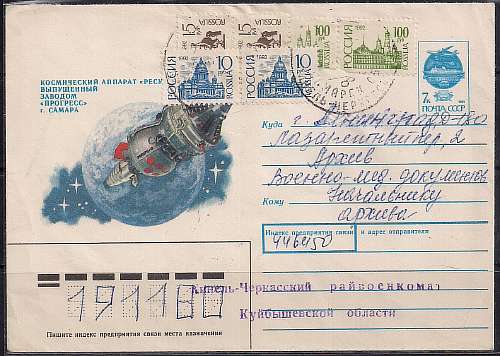 15 к
15 к
ROSSIJA
РОССИЯ
10
ROSSIJA
РОССИЯ
10
ROSSIJA
100
РОССИЯ
1992
100
КОСМИЧЕСКИЙ АППАРАТ «РЕСУ
ВЫПУЩЕННЫЙ
ЗАВОДОМ
«ПРОГРЕСС»
г. САМАРА
7к
ПОЧТА СССР
Куда г. Ленинград-180
Лазаретный пер, 2
Архив
Военно-мед. документов
Кому Начальнику
архива
Индекс предприятия связи и адрес отправителя
446450
191180
Кинель-Черкасский райвоенкомат
Куйбышевской области
Пишите индекс предприятия связи места назначения